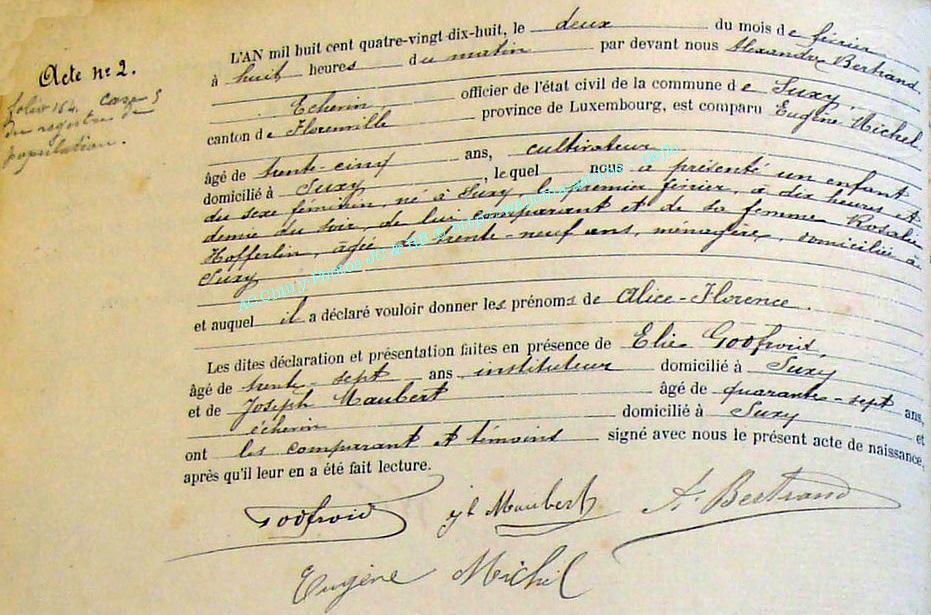 Acte nº 2.
folio 164. case 5
du registre de
population.
L'AN mil huit cent quatre-vingt-dix-huit, le deux du mois de février
à huit heures du matin par devant nous Alexandre Bertrand.
Echevin officier de l'état civil de la commune de Suxy,
canton de Florenville province de Luxembourg, est comparu Eugène Michel
âgé de trente-cinq ans, cultivateur
domicilié à Suxy, le quel nous a présenté un enfant
du sexe féminin, né à Suxy, le premier février, à dix heures et
demie du soir, de lui comparant et de sa femme Rosalie
Hofferlin, âgée de trente-neuf ans, ménagère, domiciliée à
Suxy
et auquel il a déclaré vouloir donner les prénoms de Alice-Florence.
Les dites déclaration et présentation faites en présence de Elie Godfroid,
âgé de trente-sept ans instituteur domicilié à Suxy
et de Joseph Maubert âgé de quarante-sept ans,
échevin domicilié à Suxy et
ont les comparant et témoins signé avec nous le présent acte de naissance,
après qu'il leur en a été fait lecture.
Godfroid jh Maubert A. Bertrand
Eugène Michel